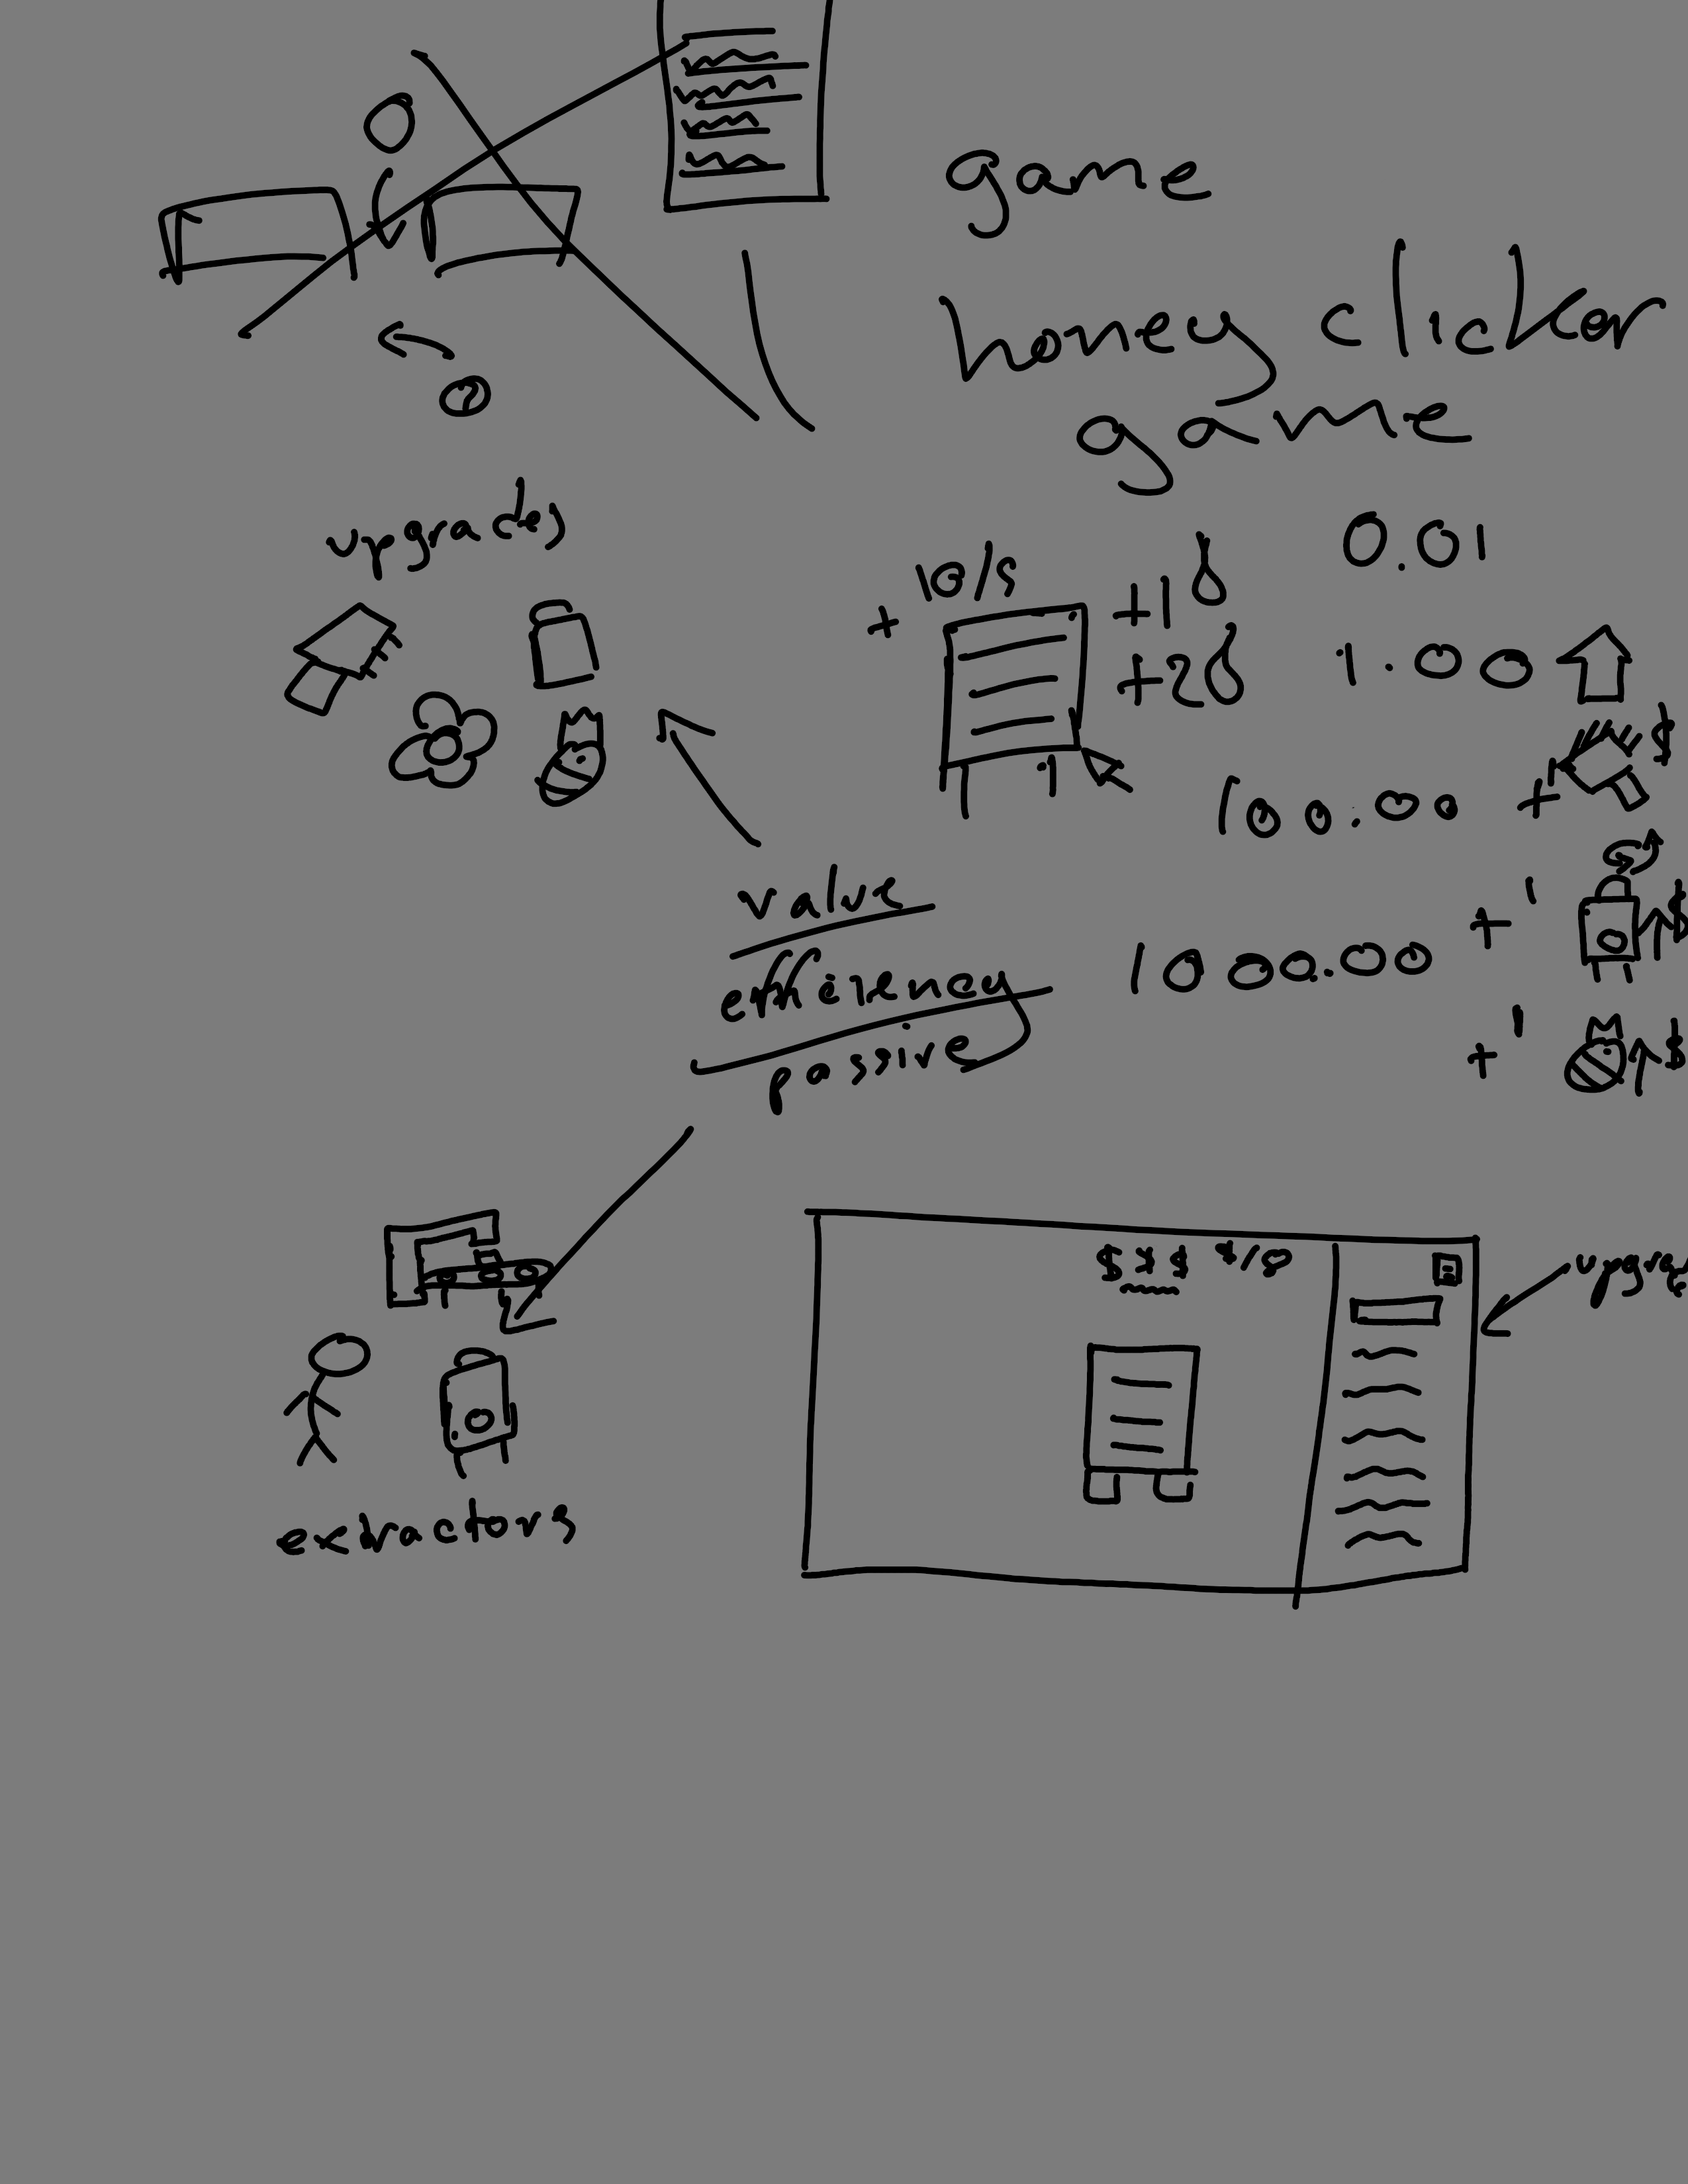 game
honey clicker
game
upgrades
+ 10/s
+1
+2
0.01
1.00
100.00 +1 $
1000.00 +1 $
+1 $
value
efficiency
passive
$$$ $/s
extractors